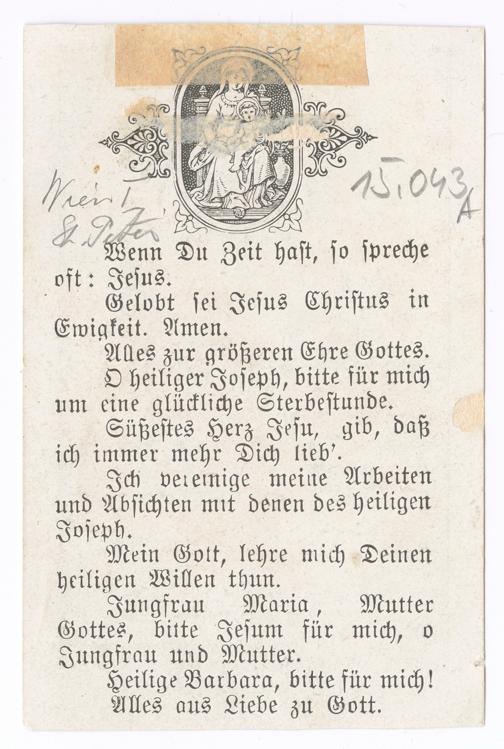 Wien I
St. Peter
15.043
A
Wenn Du Zeit hast, so spreche
oft: Jesus.
Gelobt sei Jesus Christus in
Ewigkeit. Amen.
Alles zur größeren Ehre Gottes.
O heiliger Joseph, bitte für mich
um eine glückliche Sterbestunde.
Süßestes Herz Jesu, gib, daß
ich immer mehr Dich lieb'.
Ich vereinige meine Arbeiten
und Absichten mit denen des heiligen
Joseph.
Mein Gott, lehre mich Deinen
heiligen Willen thun.
Jungfrau Maria, Mutter
Gottes, bitte Jesum für mich, o
Jungfrau und Mutter.
Heilige Barbara, bitte für mich!
Alles aus Liebe zu Gott.